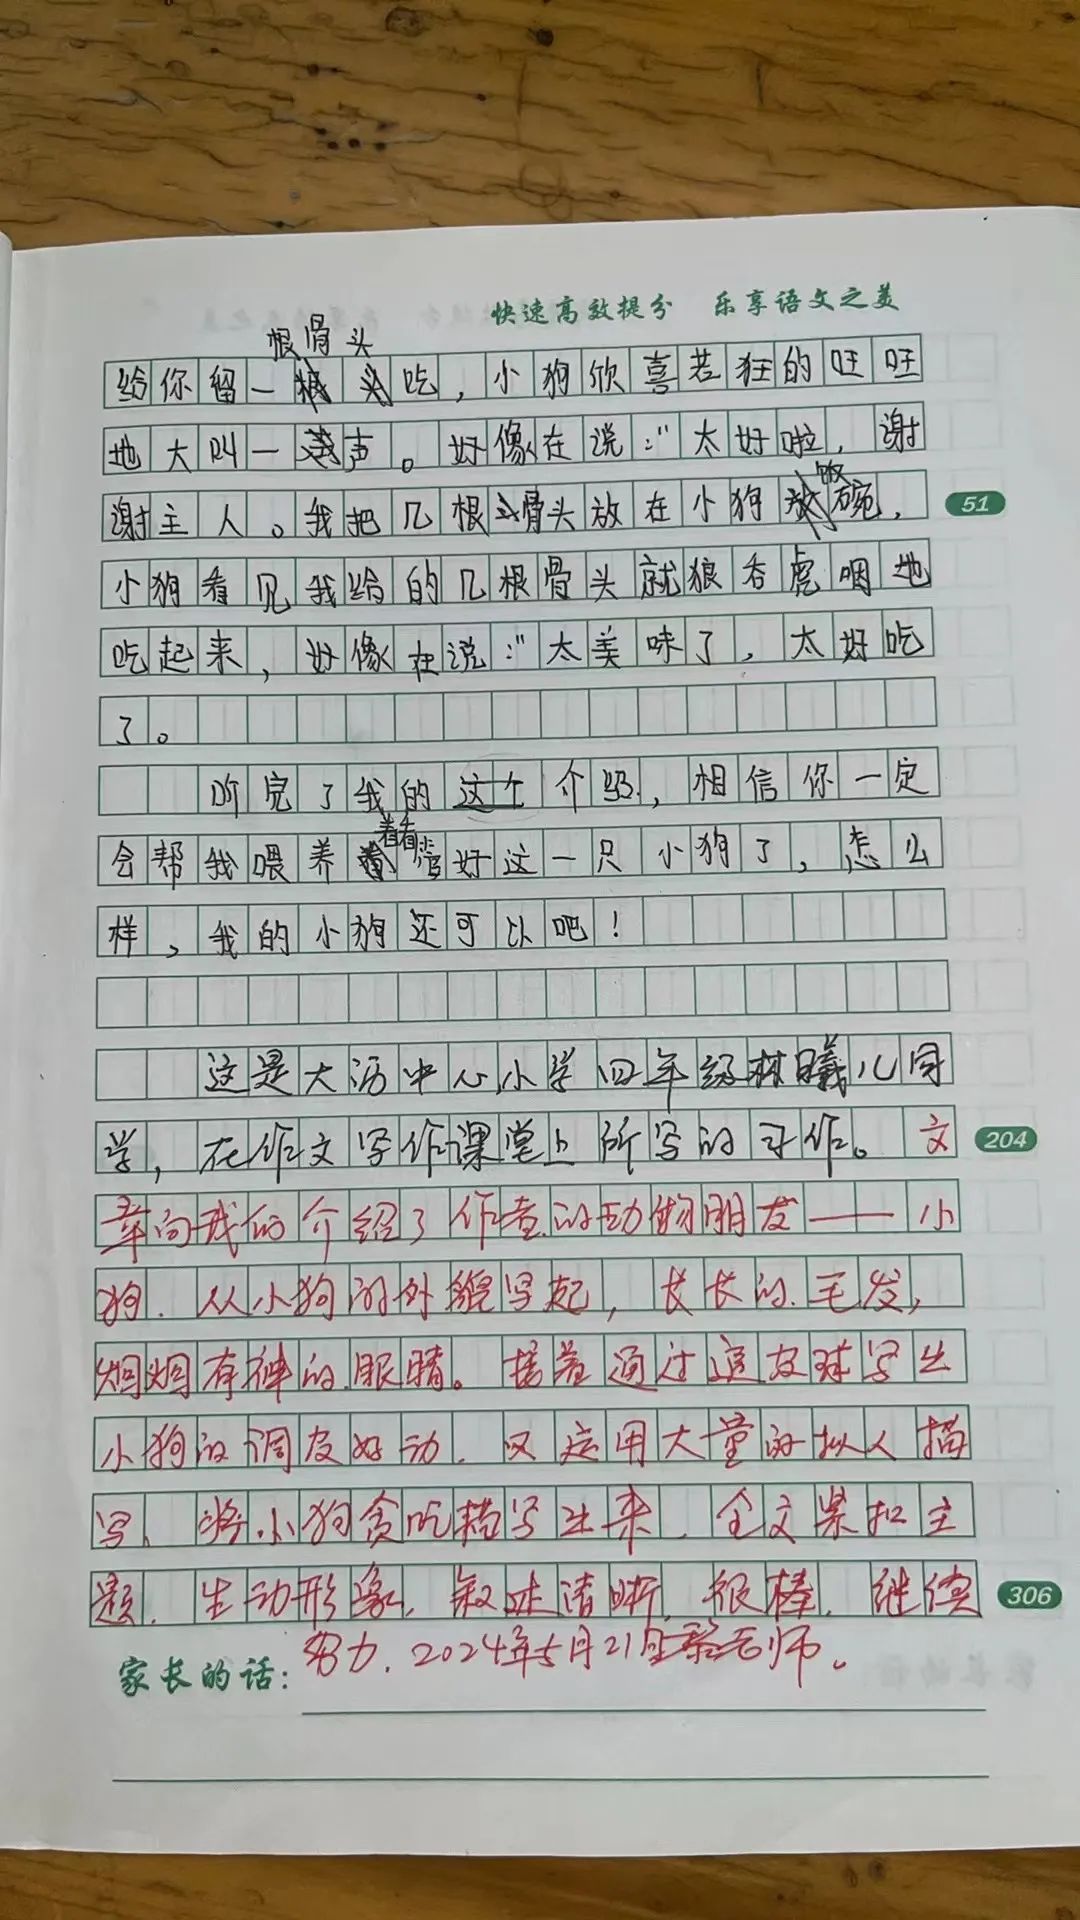 快速高效提分 乐享语文之美
根骨头
给你留一吃，小狗欣喜若狂的旺旺
地大叫一声。好像在说："太好啦，谢
饭
谢主人。我把几根骨头放在小狗碗，
51
小狗看见我给的几根骨头就狼吞虎咽地
吃起来，好像在说："太美味了，太好吃
了。
听完了我的这个介绍，相信你一定
着看
会帮我喂养好这一只小狗了，怎么
样，我的小狗还可以吧！
这是大沥中心小学四年级林曦儿同
学，在作文写作课堂上所写的习作。文
204
章向我们介绍了作者的动物朋友——小
狗.从小狗的外貌写起，长长的.毛发，
炯炯有神的眼睛。接着通过追皮球写出
小狗的调皮好动.又运用大量的拟人描
写、将小狗贪吃描写出来.全文紧扣主
题.生动形象.叙述清晰.很棒.继续
306
努力.2024年5月21日黎老师。
家长的话：